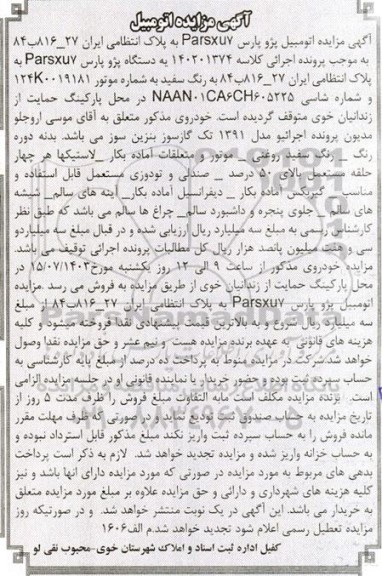 آگهی مزایده اتومبیل
آگهی مزایده اتومبیل پژو پارس Parsxu7 به پلاک انتظامی ایران ۲۷_۸۱۶ب۸۴
به موجب پرونده اجرائی کلاسه ۱۴۰۲۰۱۳۷۴ یه دستگاه پژو پارس Parsxu7 به
پلاک انتظامی ایران ۲۷_۸۱۶ب۸۴ به رنگ سفید به شماره موتور ۱۲۴K۰۰۱۹۱۸۱
و شماره شاسی NAAN۰۱CA۶CH۶۰۵۲۲۵ در محل پارکینگ حمایت از
زندانیان خوی متوقف گردیده است. خودروی مذکور متعلق به آقای موسی اروجلو
مدیون پرونده اجرائیو مدل ۱۳۹۱ تک گازسوز بنزین سوز می باشد. بدنه دوره
رنگ _ رنگ سفید روغنی _ موتور و متعلقات آماده بکار _لاستیکها هر چهار
حلقه مستعمل بالای ۵۰ درصد _ صندلی و تودوزی مستعمل قابل استفاده و
مناسب _ گیربکس آماده بکار _ دیفرانسیل آماده بکار_ اینه های سالم_ شیشه
های سالم _ جلوی پنجره و داشبورد سالم_ چراغ ها سالم می باشد که طبق نظر
کارشناس رسمی به مبلغ سه میلیارد ریال ارزیابی شده و در قبال مبلغ سه میلیاردو
سی و هفت میلیون پانصد هزار ریال کل مطالبات پرونده اجرائی توقیف می باشد.
مزایده خودروی مذکور از ساعت ۹ الی ۱۲ روز یکشنبه مورخ۱۵/۰۷/۱۴۰۳ در
محل پارکینگ حمایت از زندانیان خوی از طریق مزایده به فروش می رسد .مزایده
اتومبیل پژو پارس Parsxu7 به پلاک انتظامی ایران ۲۷_۸۱۶ب۸۴ از مبلغ
سه میلیارد ریال شروع و به بالاترین قیمت پیشنهادی نقدا فروخته میشود و کلیه
هزینه های قانونی به عهده برنده مزایده هست و نیم عشر و حق مزایده نقدا وصول
خواهد شد.شرکت در مزایده منوط به پرداخت ده درصد از مبلغ پایه کارشناسی به
حساب سپرده ثبت بوده و حضور خریدار یا نماینده قانونی او در جلسه مزایده الزامی
است. برنده مزایده مکلف است مابه التفاوت مبلغ فروش را ظرف مدت ۵ روز از
تاریخ مزایده به حساب صندوق ثبت تودیع نماید و در صورتی که ظرف مهلت مقرر
مانده فروش را به حساب سپرده ثبت واریز نکند مبلغ مذکور قابل استرداد نبوده و
به حساب خزانه واریز شده و مزایده تجدید خواهد شد. لازم به ذکر است پرداخت
بدهی های مربوط به مورد مزایده در صورتی که مورد مزایده دارای انها باشد و نیز
کلیه هزینه های شهرداری و دارائی و حق مزایده علاوه بر مبلغ مورد مزایده متعلق
به خریدار می باشد. این آگهی در یک نوبت منتشر خواهد شد. و در صورتیکه روز
مزایده تعطیل رسمی اعلام شود تجدید خواهد شد.م الف۱۶۰۶
کفیل اداره ثبت اسناد و املاک شهرستان خوی-محبوب نقی لو